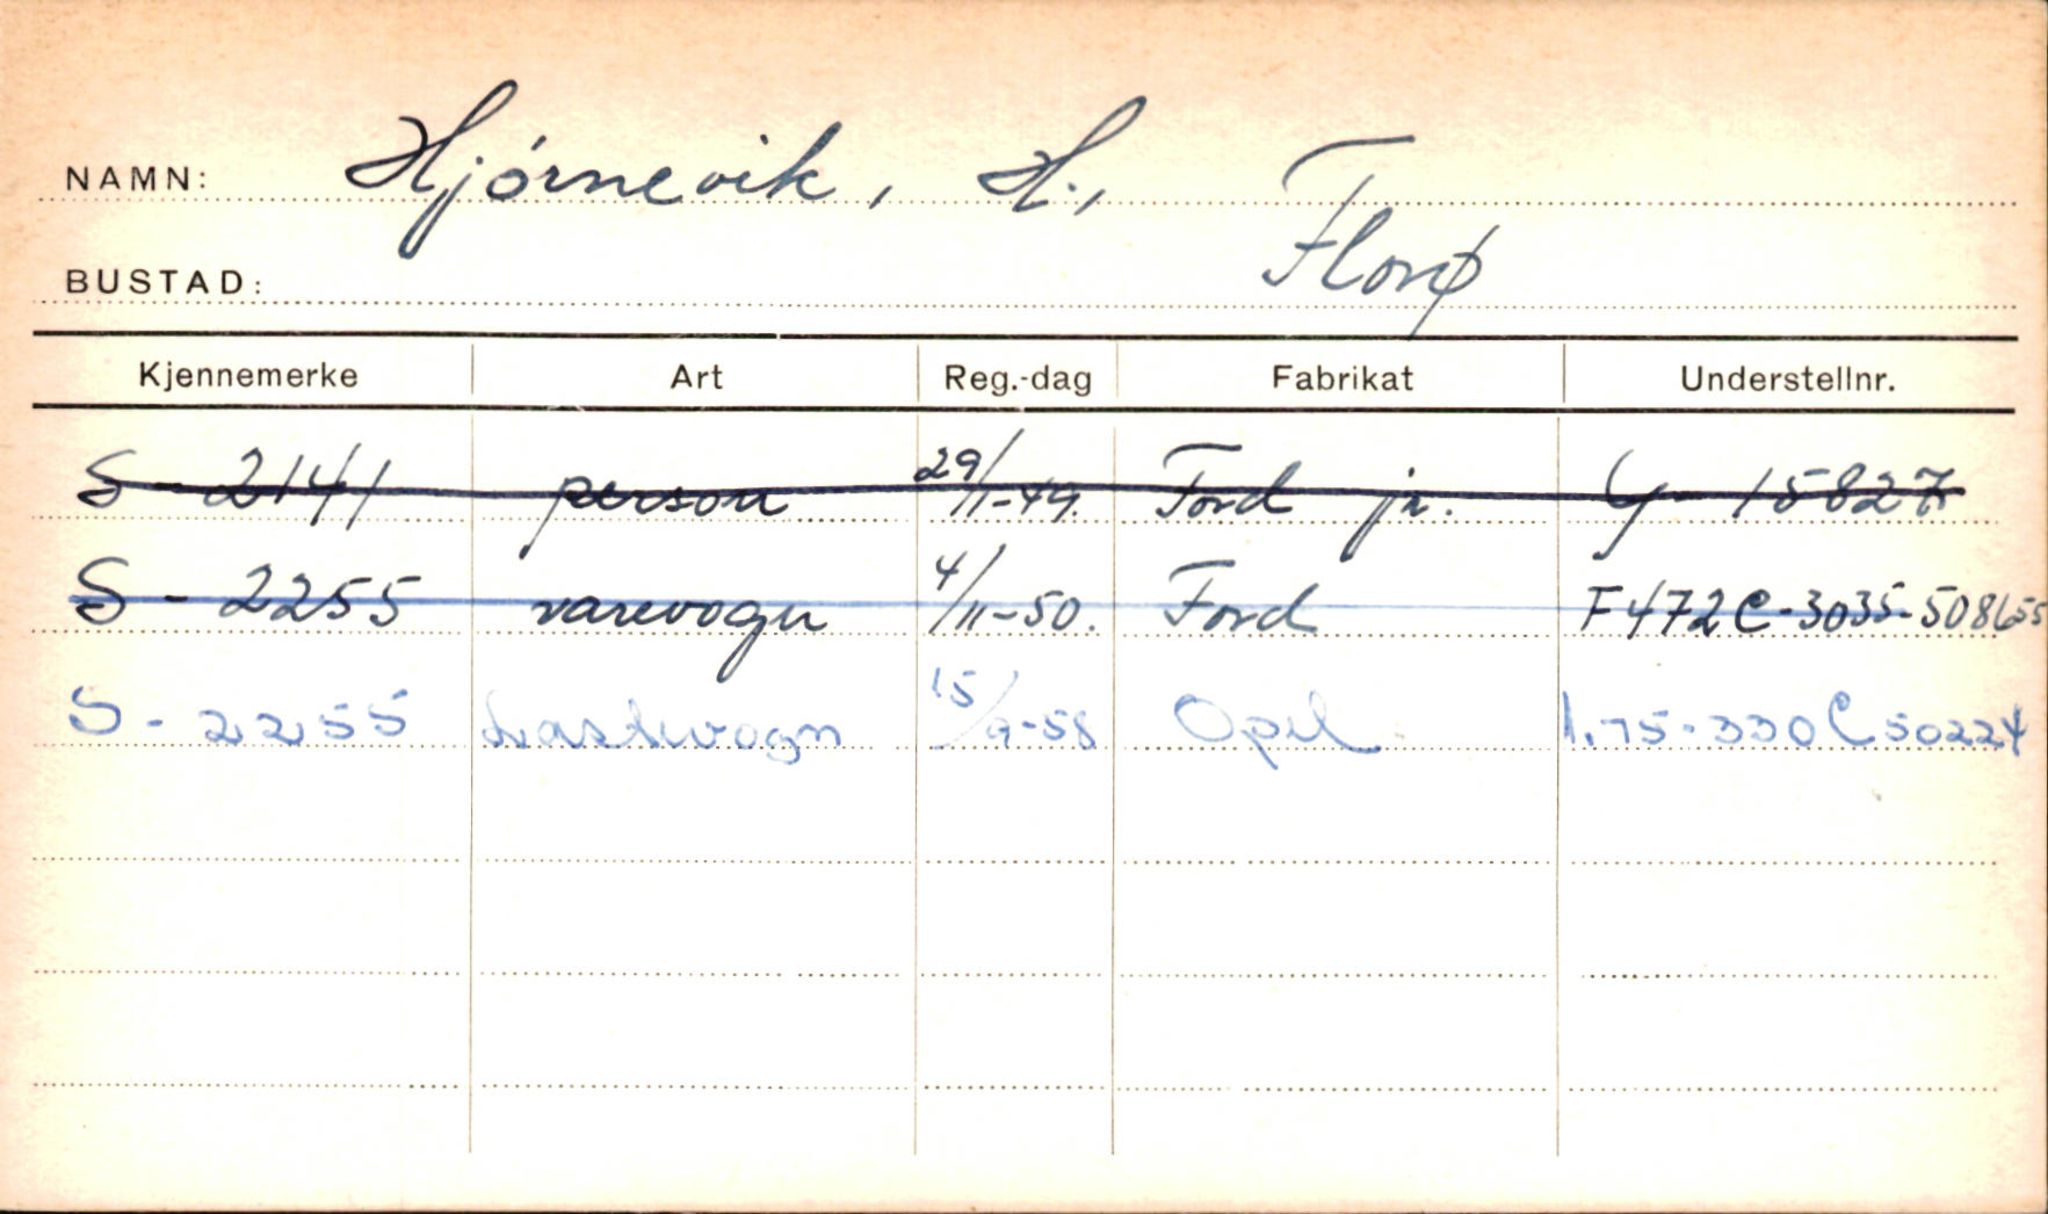 NAMN: Hjørnevik, H.,
BUSTAD: Florø
Kjennemerke Art Reg.-dag Fabrikat Understellnr.
S - 2141 person 29/11-49. Ford jr. Y - 15827
S - 2255 varevogn 4/11-50. Ford F472C-3035-508655
S - 2255 Lastevogn 15/9-58 Opel 1.75-330C50224